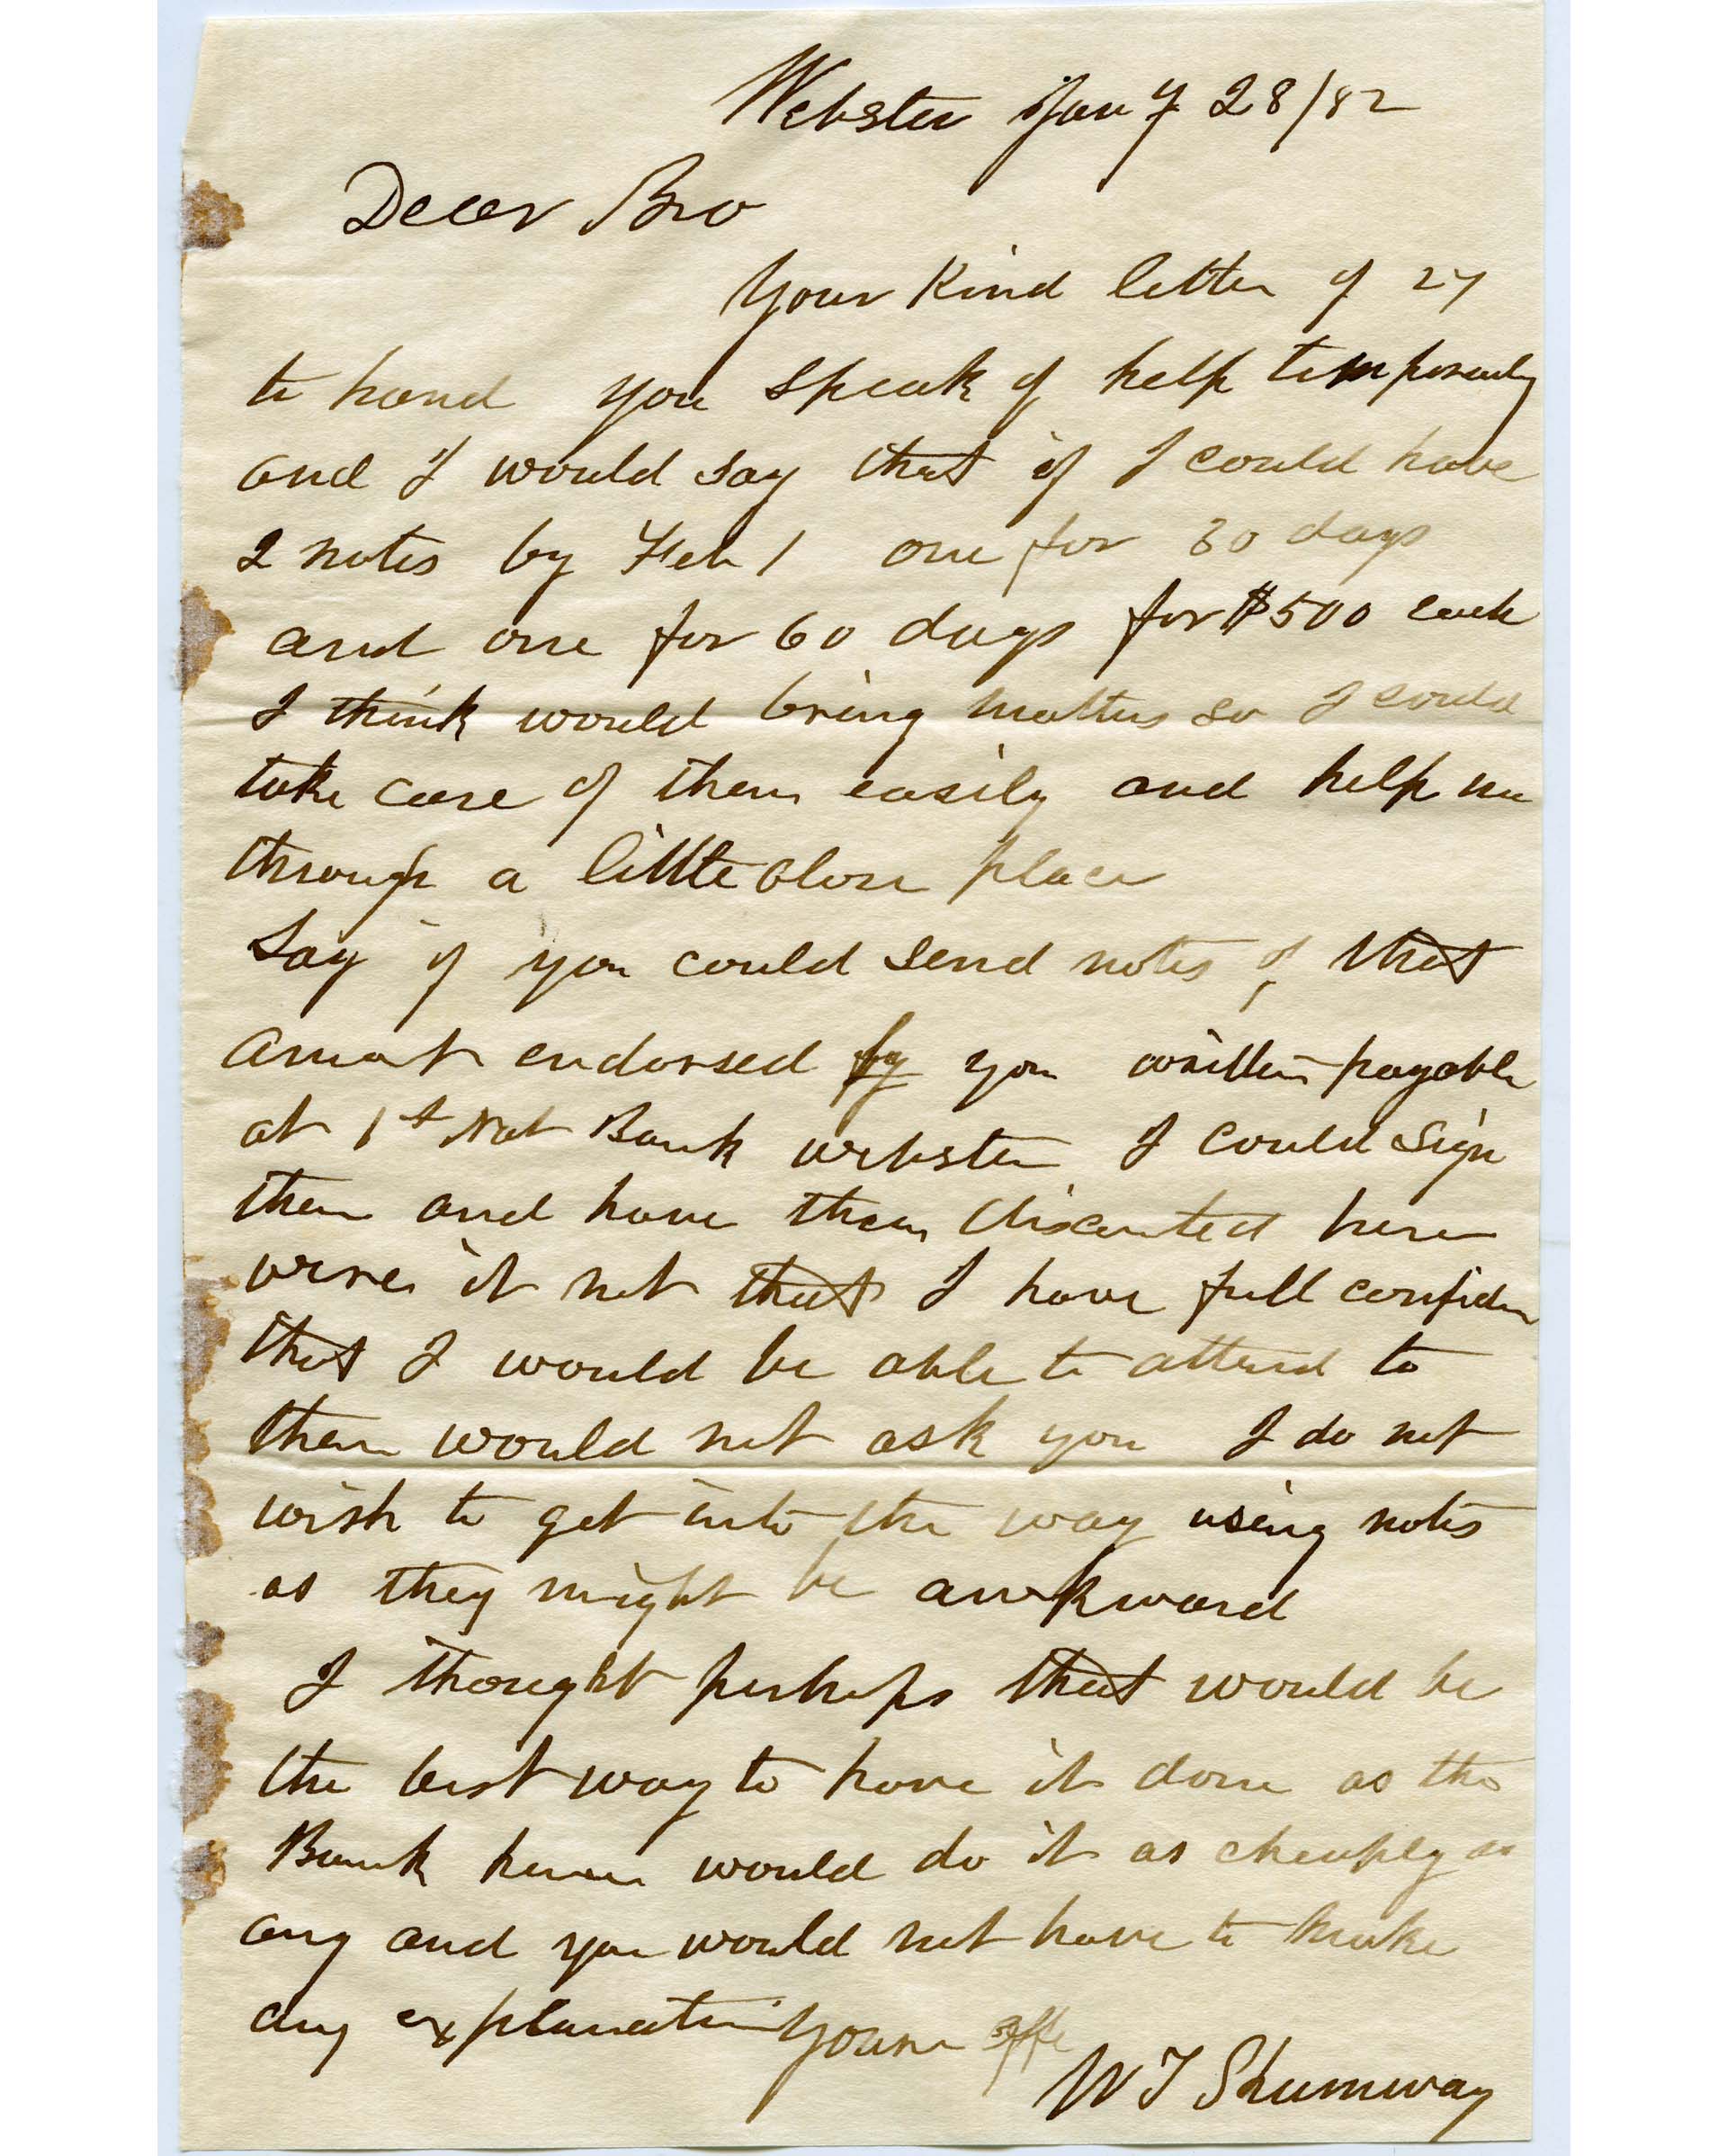 Webster Jany 28/82
Dear Bro
Your Kind letter of 27
to hand you speak of help temporarily
and I would say that if I could have
2 notes by Feb 1 one for 30 days
and one for 60 days for $500 each
I think would bring matters so I could
take care of them easily and help me
through a little close place
Say if you could send notes of that
amount endorsed by you written payable
at 1st Nat Bank webster I could sign
them and have them discounted here
were it not that I have full confiden
that I would be able to attend to
them would not ask you I do not
wish to get into the way using notes
as they might be awkward
I thought perhaps that would be
the best way to have it done as the
Bank here would do it as cheaply as
any and you would not have to make
any explanation Yours affe
W T Shumway